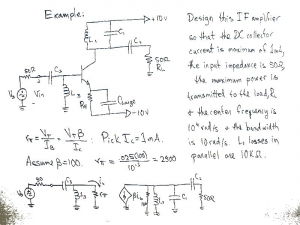 Example:
+10V
L₁
C₁
C₂
50Ω
RL
50Ω
C₃
Vs
Vin
L₃
RE
C large
-10V
Design this IF amplifier
so that the DC collector
current is maximum of 1mA,
the input impedance is 50Ω,
the maximum power is
transmitted to the load, RL
& the center frequency is
10⁶ rad/s & the bandwidth
is 10 rad/s. L₁ losses in
parallel are 10KΩ.
rπ = VT/IB = VTβ/IC : Pick IC = 1mA.
Assume β=100. rπ = .025(100)/10⁻³ = 2500
50
C₃
Vs
L₃
rπ
βib
L₁
C₁
C₂
50Ω